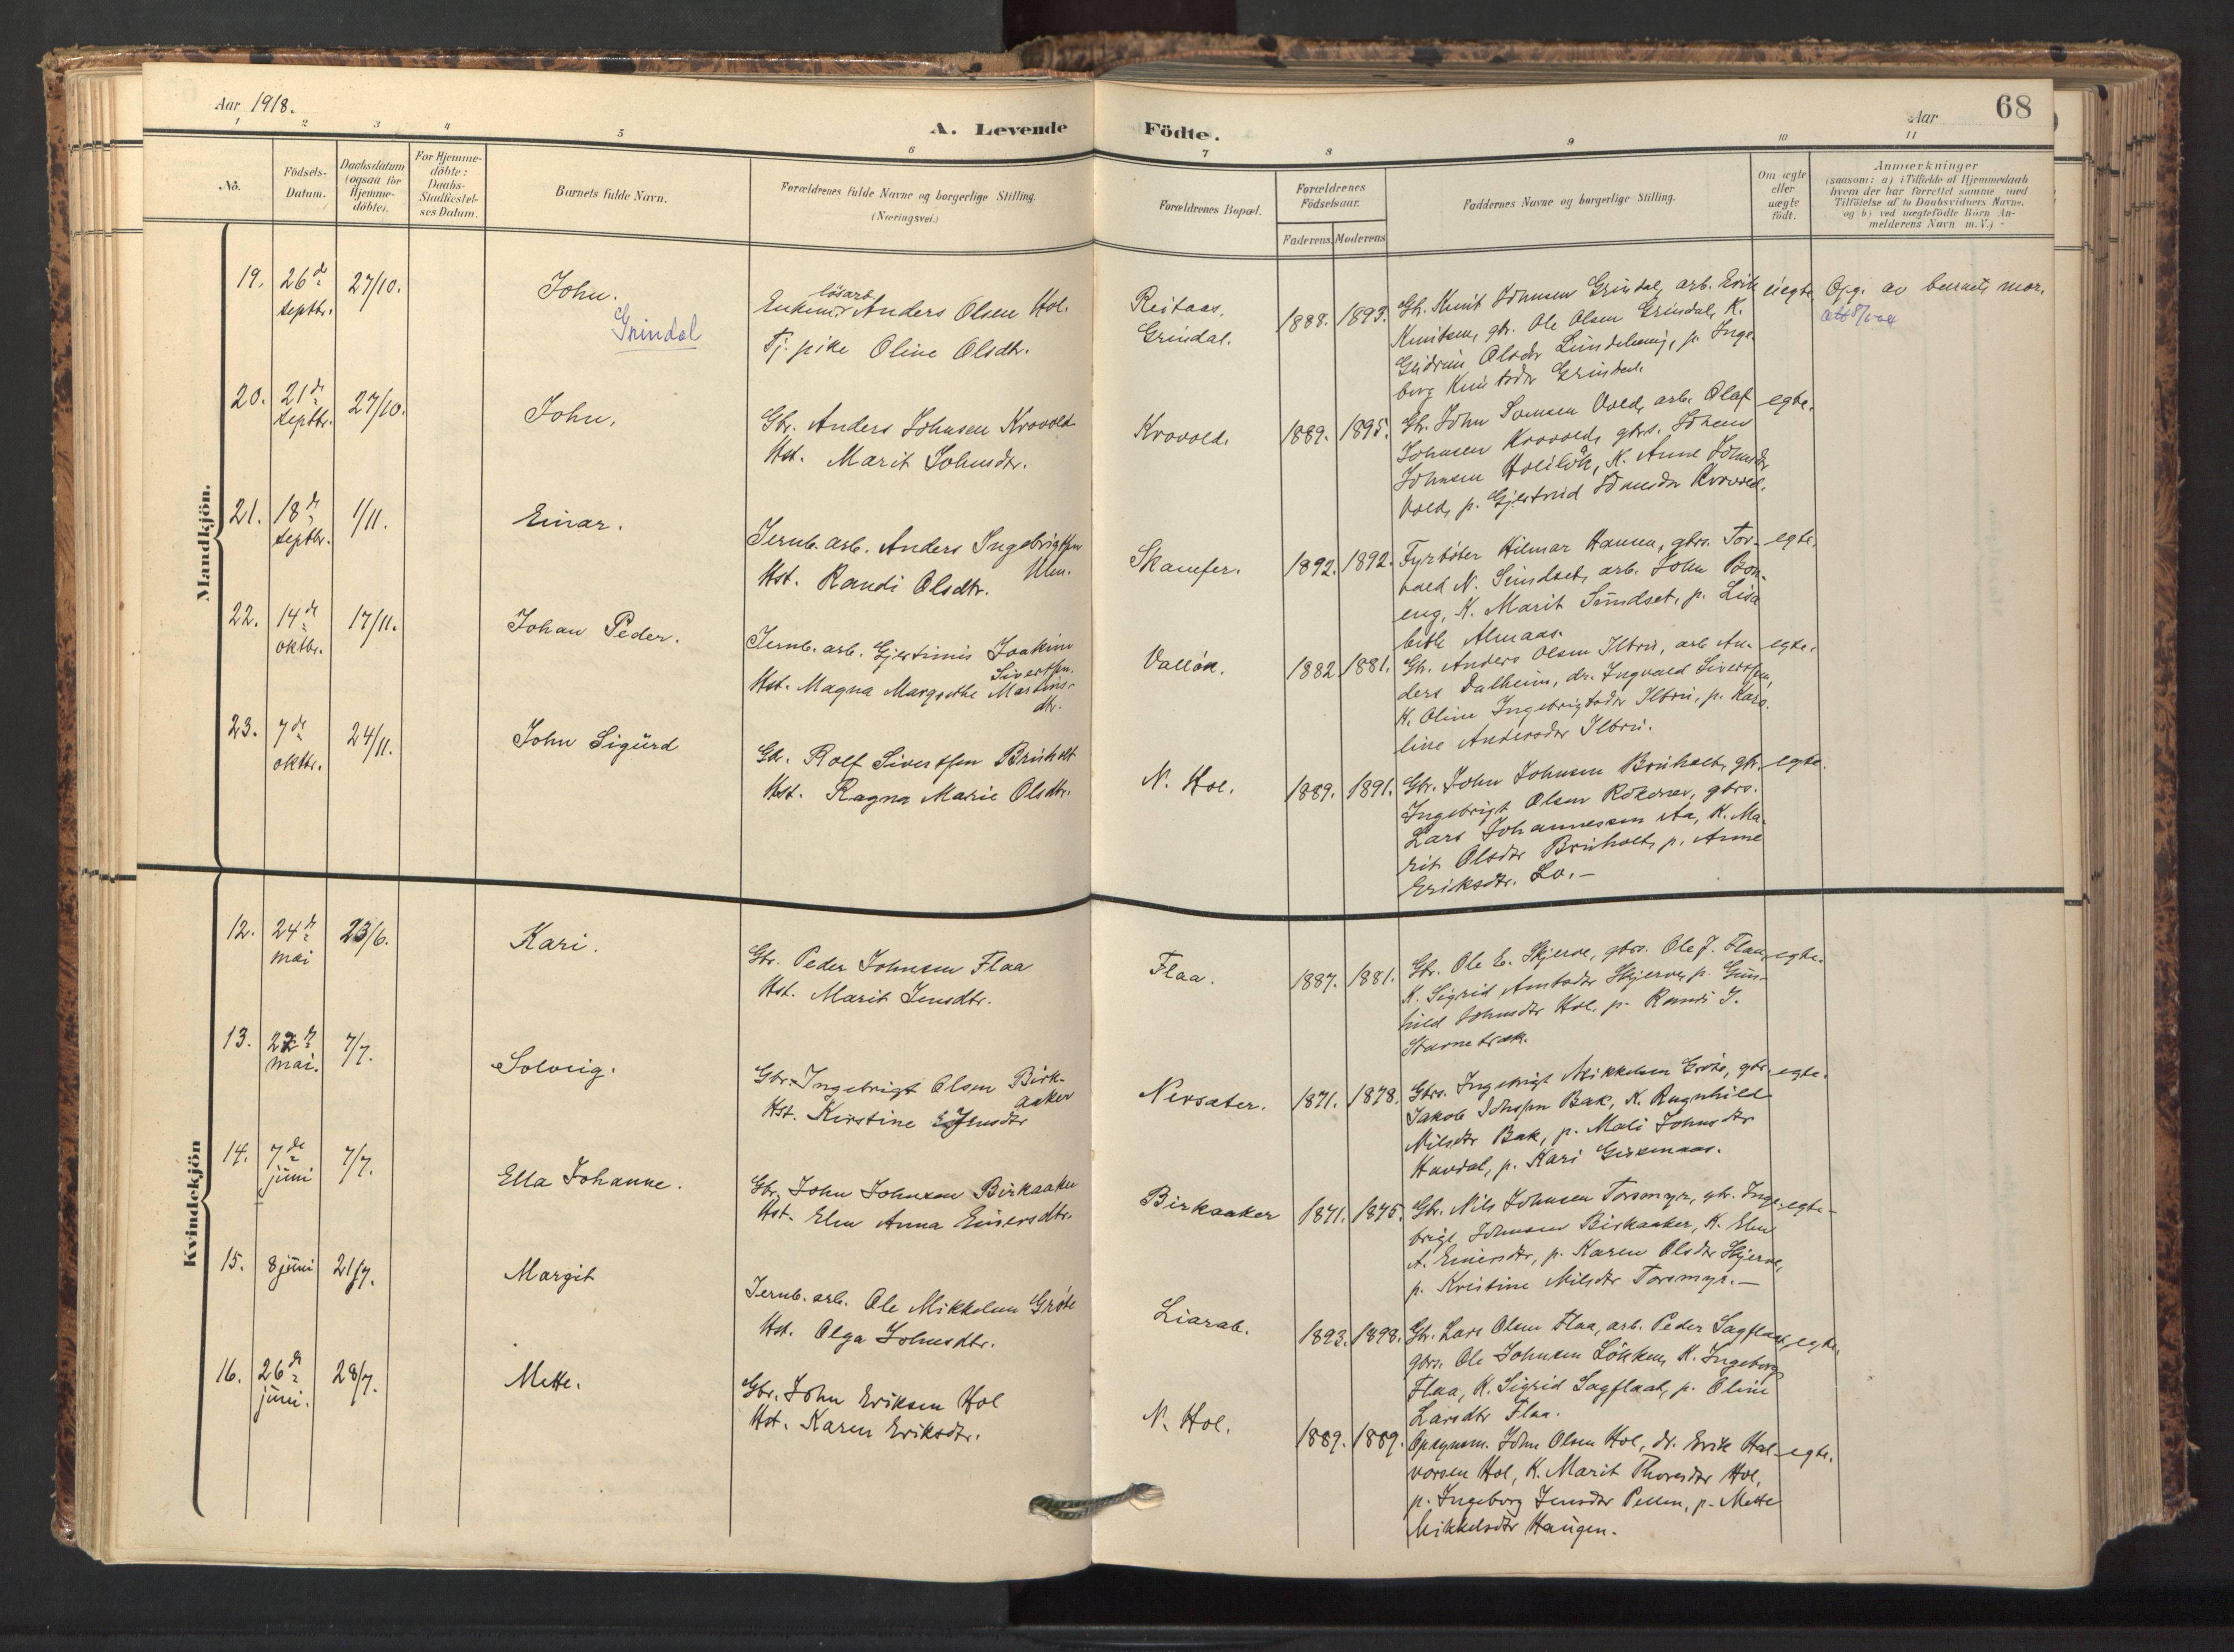 Aar 1918.
A. Levende Födte.
Aar
68
1 2 3 4 5 6 7 8 9 10 11
No.
Födsels-Datum.
Daabsdatum (ogsaa for Hjemme-döbte).
For Hjemme-döbte: Daabs-Stadfæstel-ses Datum.
Barnets fulde Navn.
Forældrenes fulde Navne og borgerlige Stilling.
(Næringsvei.)
Forældrenes Bopæl.
Forældrenes Födselsaar.
Faderens. Moderens
Faddernes Navne og borgerlige Stilling.
Om ægte eller uægte födt.
Anmærkninger
(saasom: a) i Tilfælde af Hjemmedaab
hvem der har forrettet samme med
Tilföielse af to Daabsvidners Navne.
og b) ved uægtefödte Börn An-
melderens Navn m. V.)
Mandkjön.
19. 26de septbr. 27/10. John. Grindal
Enkem. løsarb. Anders Olsen Hol.
Tj. pike Oline Olsdtr.
Reitaas, Grindal.
1888. 1893.
Gb. Knut Johnsen Grindal, arb. Erik
Knutsen, gbr. Ole Olsen Grindal, K.
Gudrun Olsdtr Lundeheng, p. Inge-
borg Knutsdtr Grindal.
uegte.
Opg. av barnets mor.
20. 21de septbr. 27/10. John.
Gbr. Anders Johnsen Krovold
Hst. Marit Johnsdtr.
Krovold.
1889. 1895.
Gb. John Vold, arb. Olaf
Johnsen Krovold, gbrs. Johan
Johnsen, K. Anne Johnsdtr
Vold, p. Gjertrud Krovold.
egte.
21. 18de septbr. 1/11. Einar.
Jernb. arb. Anders Ingebrigtsen
Hst. Randi Olsdtr.
Skamfer.
1892. 1892.
Fyrbøter Hilmar Hansen, gbrs. Tor-
vald N. Sundset, arb. John Bon-
eng, K. Marit Sundset, p. Lisa
beth Almaas.
egte.
22. 14de oktbr. 17/11. Johan Peder.
Jernb. arb. Gjertinius Joakim
Sivertsen.
Hst. Magna Margrethe Martins-
dtr.
Valløk.
1882 1881.
Gb. Anders Olsen Ilbru, arb An-
ders Dalheim, dr. Ingvald Sivertsen,
K. Oline Ingebrigtsdtr Ilbru, p. Karo-
line Andersdtr Ilbru.
egte.
23. 7de oktbr. 24/11. John Sigurd
Gbr. Rolf Sivertsen Bruholt
Hst. Ragna Marie Olsdtr.
N. Hol.
1889. 1891.
Gbr. John Johnsen Bruholt, gb.
Ingebrigt Olsen, gbrs.
Lars Johannessen Aa, K. Ma-
rit Olsdtr Bruholt, p. Anne
Eriksdtr. Lo.-
egte.
Kvindekjön
12. 24de mai 23/6. Kari.
Gbr. Peder Johnsen Flaa
Hst. Marit Jensdtr.
Flaa.
1887. 1881.
Gbr. Ole E. Skjerve, gbrs. Ole J. Flaa,
K. Sigrid Arntsdtr Skjerve, p. Gun-
hild Johnsdtr Hol, p. Randi J.
Stavnetræk.
egte.
13. 27de mai. 7/7. Solveig.
Gbr. Ingebrigt Olsen Birk-
aaker
Hst. Kirstine Jensdtr
Nersæter.
1871. 1878.
Gbrs. Ingebrigt Mikkelsen Grøte, gbr.
Jakob Johnsen Bak, K. Ragnhild
Nilsdtr Bak, p. Mali Johnsdtr
Havdal, p. Kari Gisemaas.
egte.
14. 7de juni 7/7. Ella Johanne.
Gbr. John Johnsen Birkaaker
Hst. Elen Anna Einersdtr.
Birkaaker
1871. 1875.
Gbr. Nils Johnsen Torsmyr, gbr. Inge-
brigt Johnsen Birkaaker, K. Elen
A. Einersdtr, p. Karen Olsdtr Skjerve,
p. Kristine Nilsdtr Torsmyr.-
egte-
15. 8 juni 21/7. Margit
Jernb. arb. Ole Mikkelsen Grøte
Hst. Olga Johnsdtr.
Liarab.
1893. 1898.
Gb. Lars Olsen Flaa, arb. Peder Sagflaat,
gbrs. Ole Johnsen Løkken, K. Ingeborg
Flaa, K. Sigrid Sagflaat, p. Oline
Larsdtr Flaa.
egte.
16. 26de juni. 28/7. Mette.
Gbr. John Eriksen Hol
Hst. Karen Eriksdtr.
N. Hol.
1889. 1889.
Opsynsm. John Olsen Hol, dr. Erik Hal-
vorsen Hol, K. Marit Thoresdtr Hol,
p. Ingeborg Jensdtr Pellen, p. Mette
Mikkelsdtr Haugen.
egte.